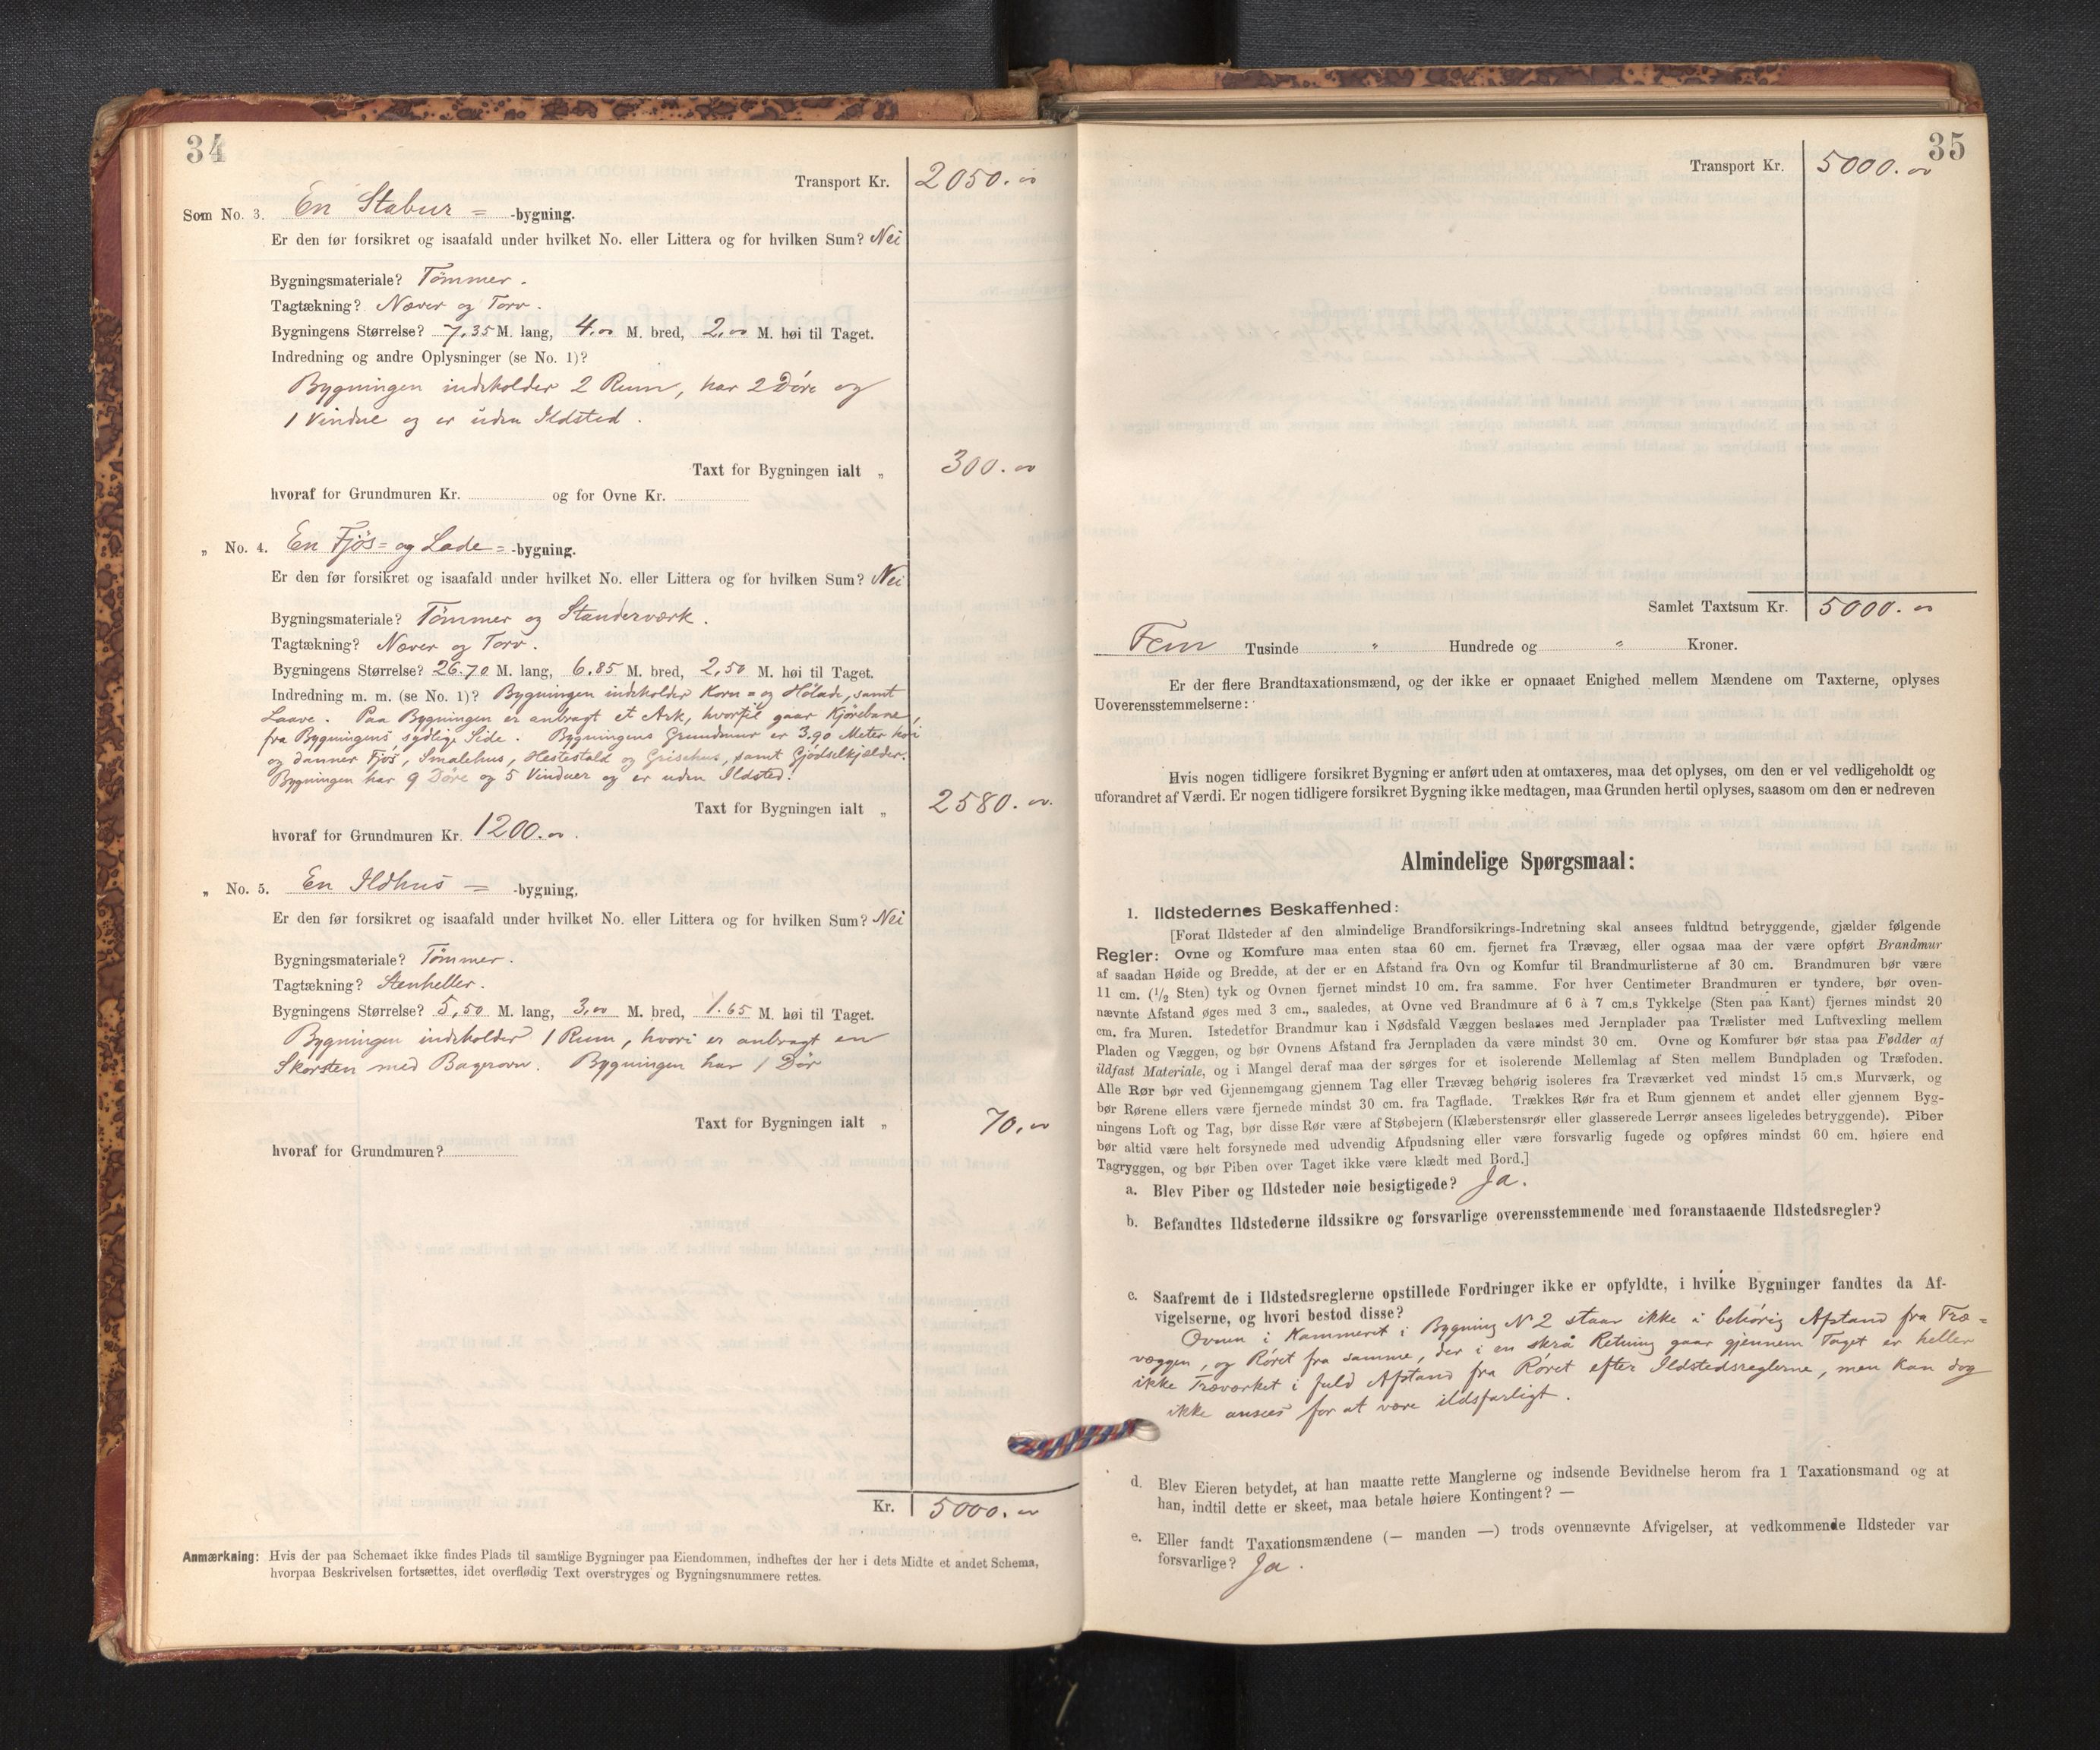 34
Transport Kr. 2050.00
Som No. 3. En Stabur = -bygning.
Er den før forsikret og isaafald under hvilket No. eller Littera og for hvilken Sum? Nei
Bygningsmateriale? Tømmer.
Tagtækning? Næver og Torv.
Bygningens Størrelse? 7,35 M. lang, 4,00 M. bred, 2,00 M. høi til Taget.
Indredning og andre Oplysninger (se No. 1)?
Bygningen indeholder 2 Rum, har 2 Døre og
1 Vindue og er uden Ildsted.
Taxt for Bygningen ialt „ 300.00
hvoraf for Grundmuren Kr. og for Ovne Kr.
„ No. 4. En Fjøs= og Lade= -bygning.
Er den før forsikret og isaafald under hvilket No. eller Littera og for hvilken Sum? Nei
Bygningsmateriale? Tømmer og Standerværk.
Tagtækning? Næver og Torv.
Bygningens Størrelse? 26.70 M. lang, 6,85 M. bred, 2,50 M. høi til Taget.
Indredning m. m. (se No. 1)? Bygningen indeholder Korn= og Hølade, samt
Laave. Paa Bygningen er anbragt et Ark, hvortil gaar Kjørebane,
fra Bygningens sydlige Side. Bygningens Grundmur er 3.90 Meter høi
og danner Fjøs, Smalehus, Hestestald og Grisehus, samt Gjødselkjælder.
Bygningen har 9 Døre og 5 Vinduer og er uden Ildsted.
Taxt for Bygningen ialt „ 2580.00.
hvoraf for Grundmuren Kr. 1200.00.
„ No. 5. En Ildhus = -bygning,
Er den før forsikret og isaafald under hvilket No. eller Littera og for hvilken Sum? Nei
Bygningsmateriale? Tømmer.
Tagtækning? Stenheller.
Bygningens Størrelse? 5,50 M. lang, 3,00 M. bred, 1.65 M. høi til Taget.
Bygningen indeholder 1 Rum, hvori er anbragt en
Skorsten med Bagerovn. Bygningen har 1 Dør
Taxt for Bygningen ialt „ 70,00
hvoraf for Grundmuren?
Kr. 5000.00
Anmærkning: Hvis der paa Schemaet ikke findes Plads til samtlige Bygninger paa Eiendommen, indheftes der her i dets Midte et andet Schema,
hvorpaa Beskrivelsen fortsættes, idet overflødig Text overstryges og Bygningsnummere rettes.
35
Transport Kr. 5000.00
Samlet Taxtsum Kr. 5000.00
Fem Tusinde „ Hundrede og „ Kroner.
Er der flere Brandtaxationsmænd, og der ikke er opnaaet Enighed mellem Mændene om Taxterne, oplyses
Uoverensstemmelserne:
Hvis nogen tidligere forsikret Bygning er anført uden at omtaxeres, maa det oplyses, om den er vel vedligeholdt og
uforandret af Værdi. Er nogen tidligere forsikret Bygning ikke medtagen, maa Grunden hertil oplyses, saasom om den er nedreven
Almindelige Spørgsmaal:
1. Ildstedernes Beskaffenhed:
[Forat Ildsteder af den almindelige Brandforsikrings-Indretning skal ansees fuldtud betryggende, gjælder følgende
Regler: Ovne og Komfure maa enten staa 60 cm. fjernet fra Trævæg, eller ogsaa maa der være opført Brandmur
af saadan Høide og Bredde, at der er en Afstand fra Ovn og Komfur til Brandmurlisterne af 30 cm. Brandmuren bør være
11 cm. (½ Sten) tyk og Ovnen fjernet mindst 10 cm. fra samme. For hver Centimeter Brandmuren er tyndere, bør oven-
nævnte Afstand øges med 3 cm., saaledes, at Ovne ved Brandmure af 6 à 7 cm.s Tykkelse (Sten paa Kant) fjernes mindst 20
cm. fra Muren. Istedetfor Brandmur kan i Nødsfald Væggen beslaaes med Jernplader paa Trælister med Luftvexling mellem
Pladen og Væggen, og bør Ovnens Afstand fra Jernpladen da være mindst 30 cm. Ovne og Komfurer bør staa paa Fødder af
ildfast Materiale, og i Mangel deraf maa der sørges for et isolerende Mellemlag af Sten mellem Bundpladen og Træfoden.
Alle Rør bør ved Gjennemgang gjennem Tag eller Trævæg behørig isoleres fra Træværket ved mindst 15 cm.s Murværk, og
bør Rørene ellers være fjernede mindst 30 cm. fra Tagflade. Trækkes Rør fra et Rum gjennem et andet eller gjennem Byg-
ningens Loft og Tag, bør disse Rør være af Støbejern (Klæberstensrør eller glasserede Lerrør ansees ligeledes betryggende). Piber
bør altid være helt forsynede med udvendig Afpudsning eller være forsvarlig fugede og opføres mindst 60 cm. høiere end
Tagryggen, og bør Piben over Taget ikke være klædt med Bord.]
a. Blev Piber og Ildsteder nøie besigtigede? Ja.
b. Befandtes Ildstederne ildssikre og forsvarlige overensstemmende med foranstaaende Ildstedsregler?
c. Saafremt de i Ildstedsreglerne opstillede Fordringer ikke er opfyldte, i hvilke Bygninger fandtes da Af-
vigelserne, og hvori bestod disse?
Ovnen i Kammeret i Bygning N 2 staar ikke i behørig Afstand fra Træ=
væggen, og Røret fra samme, der i en skrå Retning gaar gjennem Taget er heller
ikke Træværket i fuld Afstand fra Røret efter Ildstedsreglerne, men kan dog
ikke ansees for at være ildsfarligt.
d. Blev Eieren betydet, at han maatte rette Manglerne og indsende Bevidnelse herom fra 1 Taxationsmand og at
han, indtil dette er skeet, maa betale høiere Kontingent? —
e. Eller fandt Taxationsmændene (— manden —) trods ovennævnte Afvigelser, at vedkommende Ildsteder var
forsvarlige? Ja.